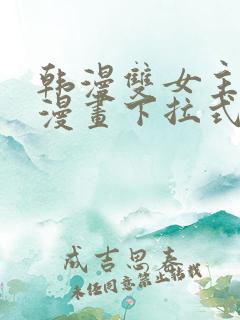 韩漫雙女主
漫畫下拉式
成吉思春
未经同意禁止转载